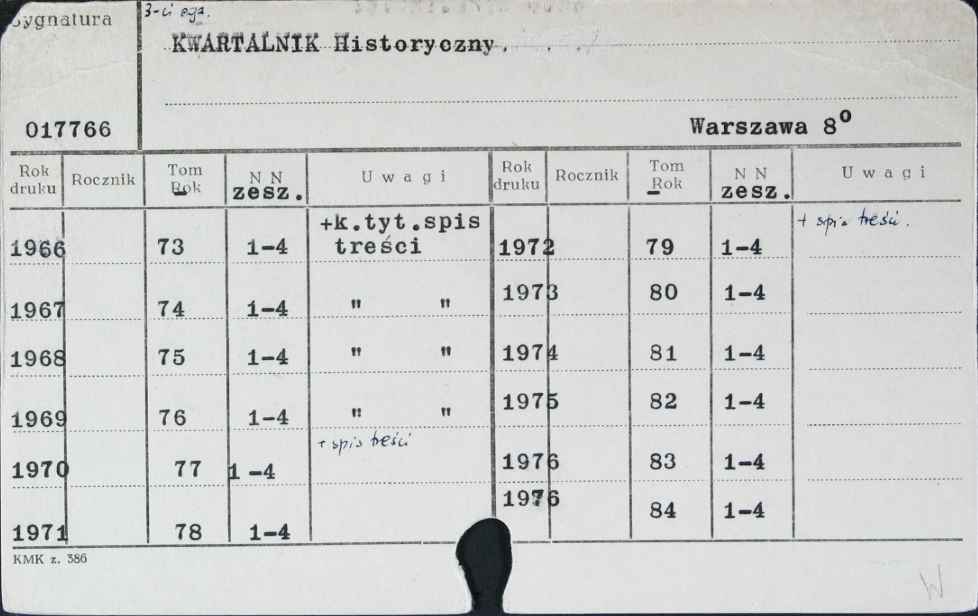 Sygnatura
3-ci egz.
KWARTALNIK Historyczny.
017766
Warszawa 8°
Rok druku Rocznik Tom Rok N N zesz. U w a g i Rok druku Rocznik Tom Rok N N zesz. U w a g i
1966 73 1-4 +k.tyt.spis treści 1972 79 1-4 + spis treści.
1967 74 1-4 " " 1973 80 1-4
1968 75 1-4 " " 1974 81 1-4
1969 76 1-4 " " 1975 82 1-4
1970 77 1-4 + spis treści 1976 83 1-4
1971 78 1-4 1976 84 1-4
KMK z. 386
W